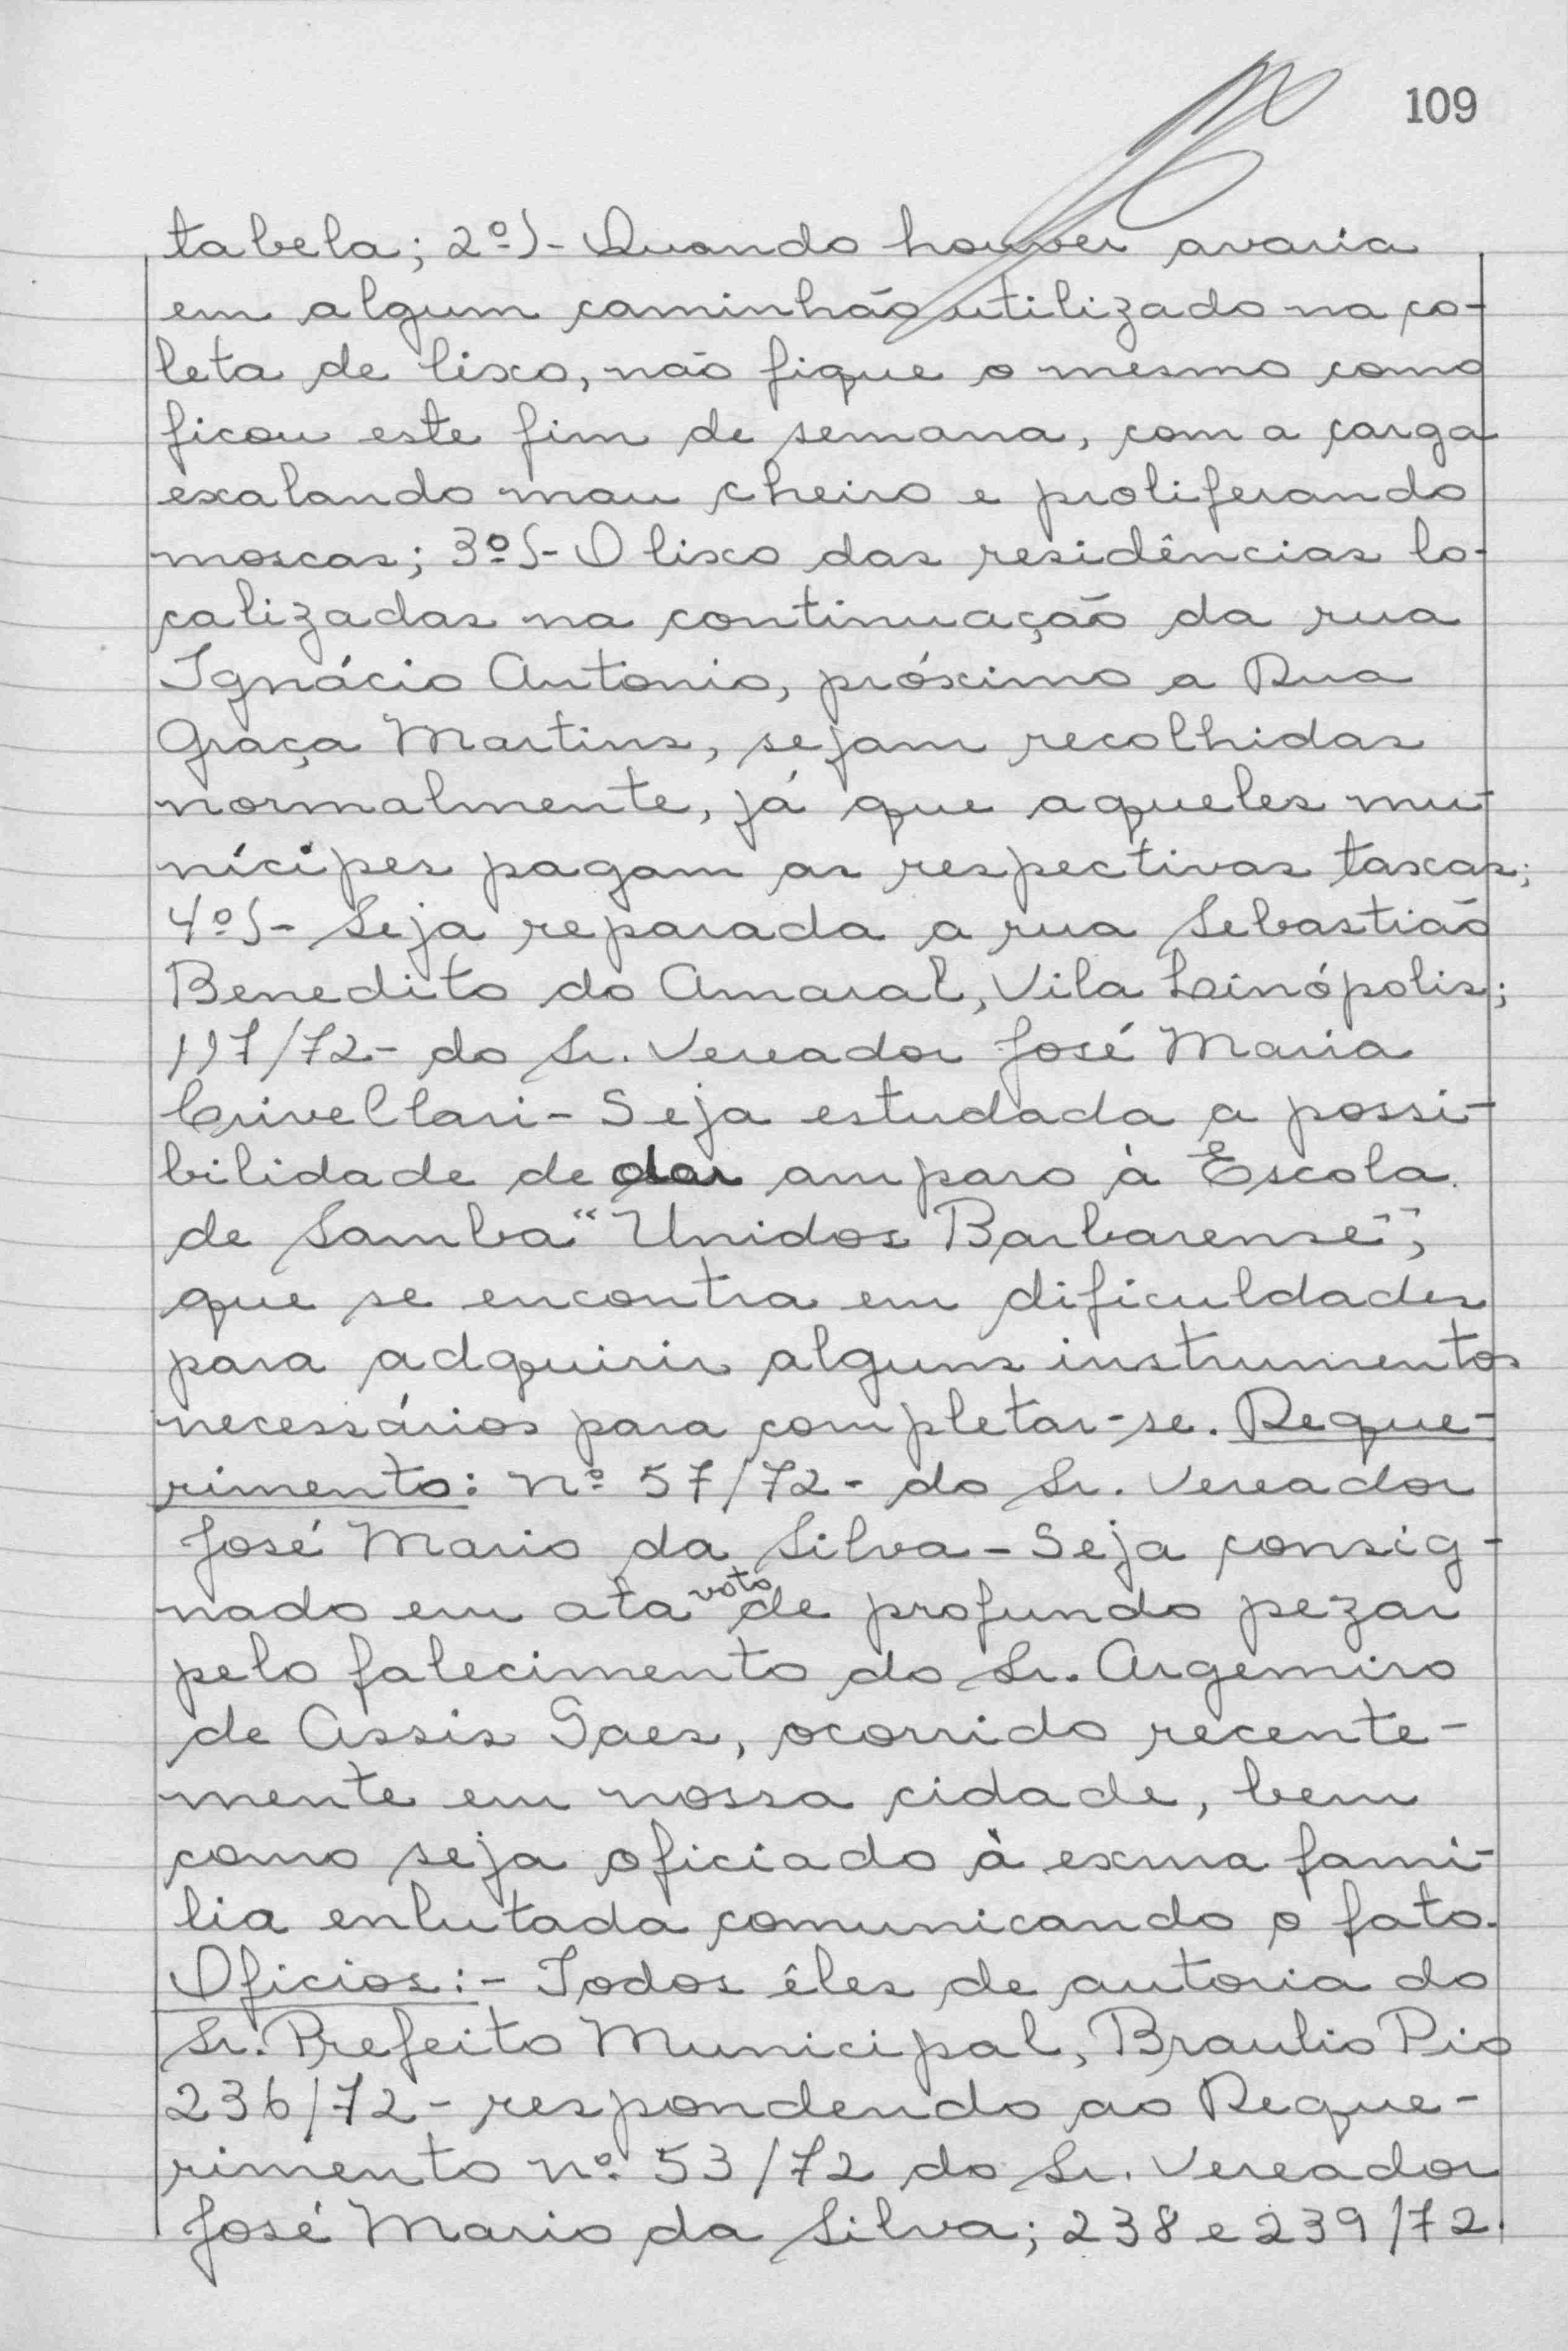 109
tabela; 2º)- Quando houver avaria
em algum caminhão utilizado na co-
leta de lixo, não fique o mesmo como
ficou este fim de semana, com a carga
exalando mau cheiro e proliferando
moscas; 3º)- O lixo das residências lo-
calizadas na continuação da rua
Ignácio Antonio, próximo a Rua
Graça Martins, sejam recolhidas
normalmente, já que aqueles mu-
nícipes pagam as respectivas taxas;
4º)- Seja reparada a rua Sebastião
Benedito do Amaral, Vila Linópolis;
117/72- do Sr. Vereador José Maria
Crivellari- Seja estudada a possi-
bilidade de dar amparo à Escola
de Samba "Unidos Barbarense",
que se encontra em dificuldades
para adquirir alguns instrumentos
necessários para completar-se. Reque-
rimento: nº 57/72- do Sr. Vereador
José Mario da Silva- Seja consig-
nado em ata voto de profundo pezar
pelo falecimento do Sr. Argemiro
de Assis Saes, ocorrido recente-
mente em nossa cidade, bem
como seja oficiado à exma fami-
lia enlutada comunicando o fato.
Oficios:- Todos êles de autoria do
Sr. Prefeito Municipal, Braulio Pio
236/72- respondendo ao Reque-
rimento nº 53/72 do Sr. Vereador
José Mario da Silva; 238 e 239/72.